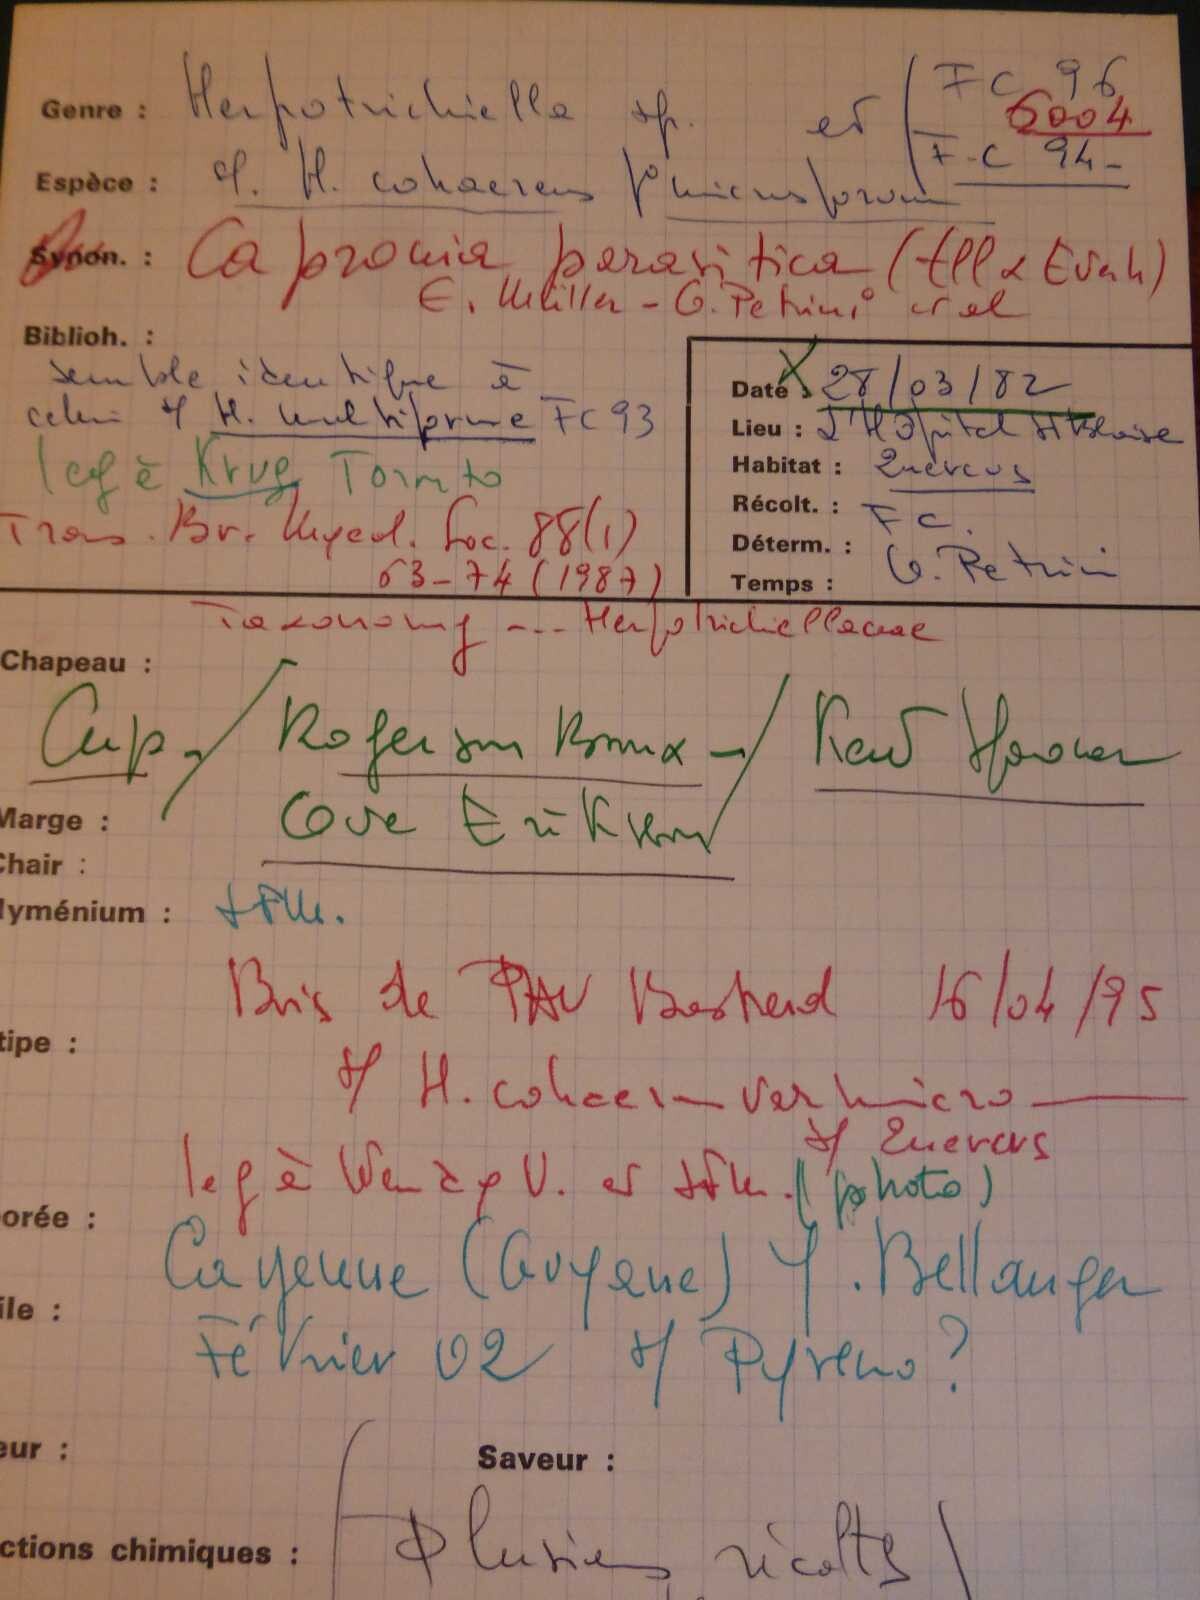 Genre : Herpotrichiella sp. et FC 96
6004
Espèce : cf. H. cohaerens f microsporum F.C 94
Synon. : Capronia parasitica (Ell & Everh)
E. Müller - O. Petrini et al
Biblioh. :
semble identique à
celui s/ H. multiforme FC 93
leg à Krug Toronto
Trans. Br. Mycol. Soc. 88(1)
63-74 (1987)
Date : 28/03/82
Lieu : L'Hôpital St Blaise
Habitat : Quercus
Récolt. : F C.
Déterm. : O. Petrini
Temps :
Taxonomy --- Herpotrichiellaceae
Chapeau :
Cup / Rogerson Bronx / Kent
Ove Eriksson
Marge :
Chair :
Hyménium :
Bois de PAU Bastard 16/04/95
tipe :
s/ H. cohaerens var micro
s/ Quercus
leg à et (photo)
orée :
Cayenne (Guyane) Bellanger
ile :
Février 02 s/ Pyreno?
eur :
Saveur :
ctions chimiques :
Plusieurs récoltes